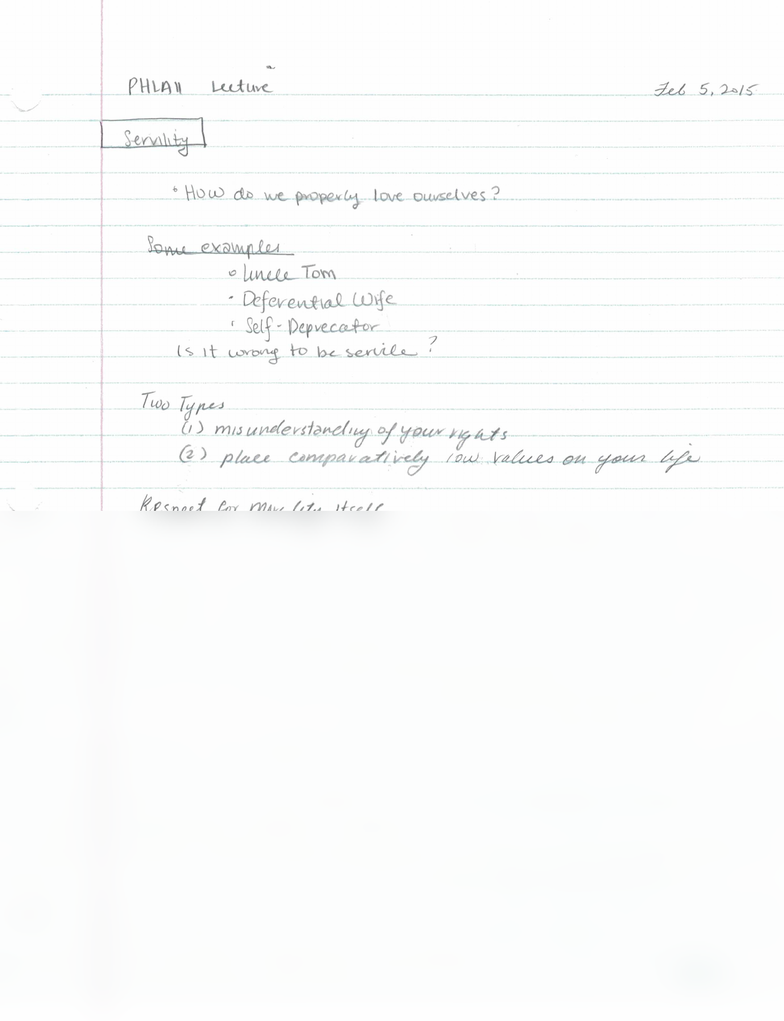 PHLA11 Lecture
Feb 5, 2015
Servility
• How do we properly love ourselves?
Some examples
• Uncle Tom
• Deferential Wife
• Self-Deprecator
Is it wrong to be servile?
Two Types
(1) misunderstanding of your rights
(2) place comparatively low values on your life
Respect for morality itself